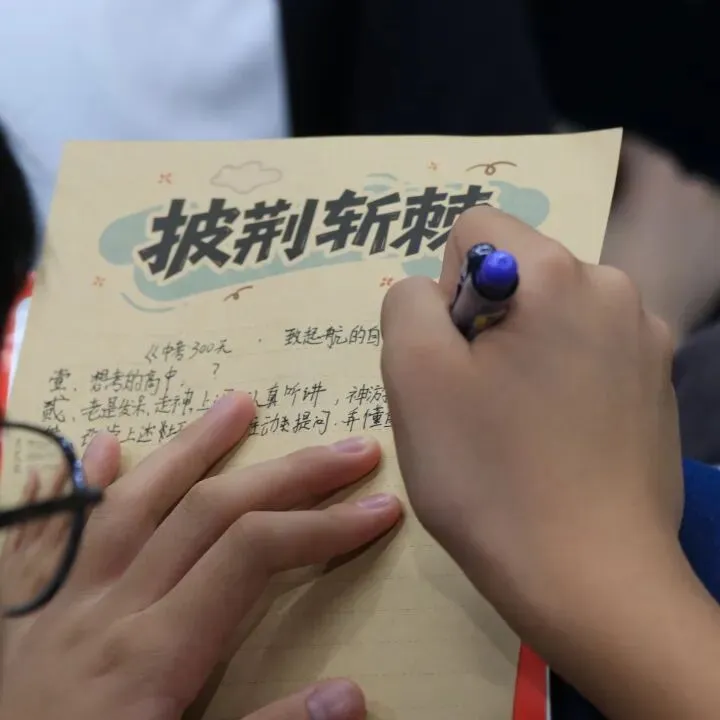 披荆斩棘
《中考300天 · 致起航的自
壹、想考的高中。?
贰、老是发呆,走神,上 认真听讲,神游
上述 主动去提问.弄懂